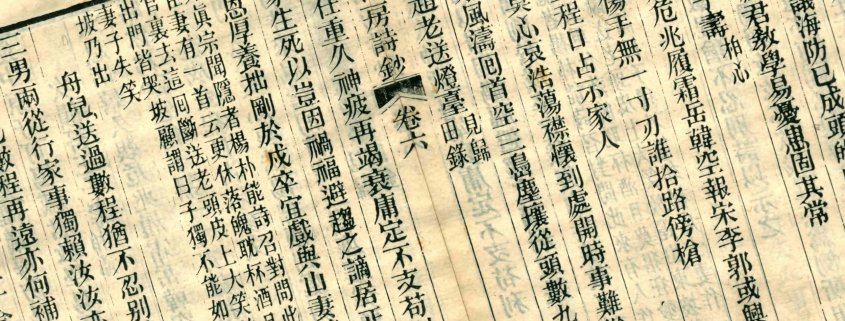 識海防已成頭的
君教學易憂患固其常
子壽柏心
危兆履霜岳韓空報宋李郭或興
手無一寸刃誰拾路傍槍
程口占示家人
莫心哀浩蕩襟懷到處開時事難
風濤回首空三島塵壤從頭數九
趙老送燈臺見歸田錄
房詩鈔 卷六
任重久神疲再竭衰庸定不支苟
生死以豈因禍福避趨之謫居正
恩厚養拙剛於戍卒宜戲與山妻
真宗聞隱者楊朴能詩召對問此
臣妻有一首云更休落魄耽杯酒且
官裏去這回斷送老頭皮上大笑
出門皆哭坡顧謂曰子獨不能如
妻子失笑
坡乃出
舟兒送過數程猶不忍別
三男兩從行家事獨賴汝汝亦
數程再遠亦何補